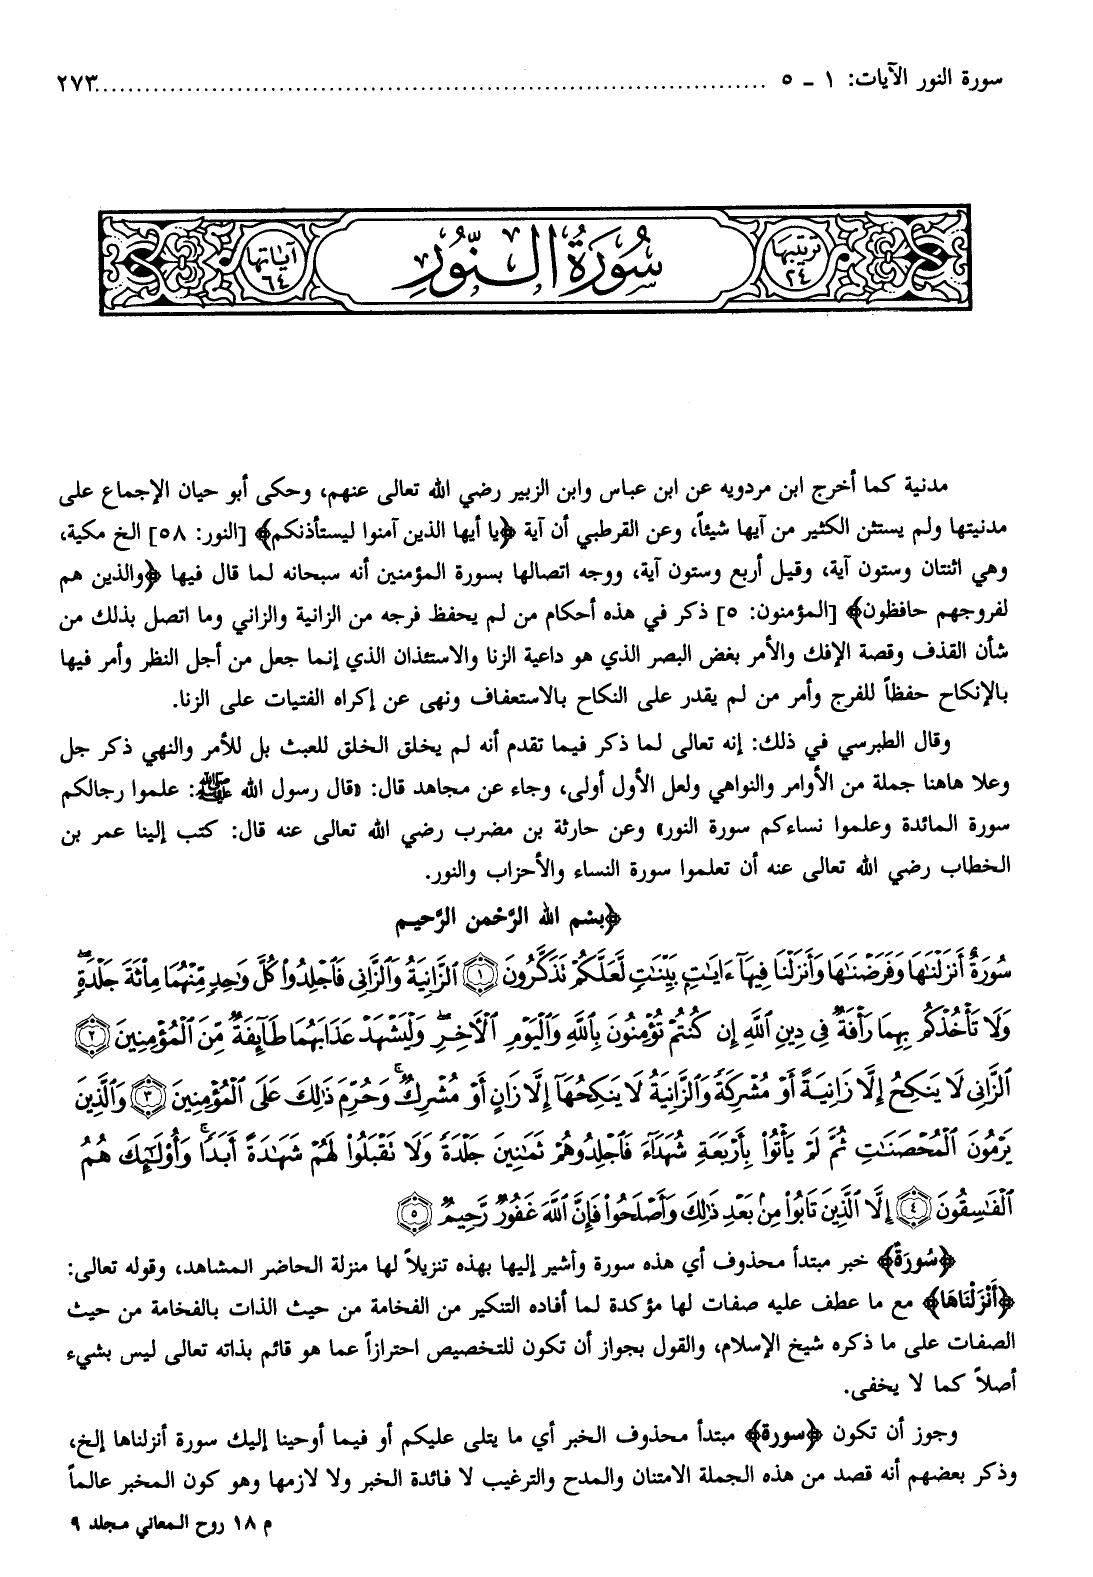 سورة النور الآيات: ١ ـ ٥ ........................................ ٢٧٣
ترتيبها ٢٤
سُورَةُ النُّورِ
آياتها ٦٤
مدنية كما أخرج ابن مردويه عن ابن عباس وابن الزبير رضي الله تعالى عنهم، وحكى أبو حيان الإجماع على
مدنيتها ولم يستثن الكثير من آيها شيئاً، وعن القرطبي أن آية ﴿يا أيها الذين آمنوا ليستأذنكم﴾ [النور: ٥٨] الخ مكية،
وهي اثنتان وستون آية، وقيل أربع وستون آية، ووجه اتصالها بسورة المؤمنين أنه سبحانه لما قال فيها ﴿والذين هم
لفروجهم حافظون﴾ [المؤمنون: ٥] ذكر في هذه أحكام من لم يحفظ فرجه من الزانية والزاني وما اتصل بذلك من
شأن القذف وقصة الإفك والأمر بغض البصر الذي هو داعية الزنا والاستئذان الذي إنما جعل من أجل النظر وأمر فيها
بالإنكاح حفظاً للفرج وأمر من لم يقدر على النكاح بالاستعفاف ونهى عن إكراه الفتيات على الزنا.
وقال الطبرسي في ذلك: إنه تعالى لما ذكر فيما تقدم أنه لم يخلق الخلق للعبث بل للأمر والنهي ذكر جل
وعلا هاهنا جملة من الأوامر والنواهي ولعل الأول أولى، وجاء عن مجاهد قال: «قال رسول الله ﷺ: علموا رجالكم
سورة المائدة وعلموا نساءكم سورة النور» وعن حارثة بن مضرب رضي الله تعالى عنه قال: كتب إلينا عمر بن
الخطاب رضي الله تعالى عنه أن تعلموا سورة النساء والأحزاب والنور.
﴿بسْم الله الرَّحْمن الرَّحيم
سُورَةٌ أَنزَلْنَٰهَا وَفَرَضْنَٰهَا وَأَنزَلْنَا فِيهَآ ءَايَٰتٍۭ بَيِّنَٰتٍ لَّعَلَّكُمْ تَذَكَّرُونَ ۝١ ٱلزَّانِيَةُ وَٱلزَّانِى فَٱجْلِدُوا۟ كُلَّ وَٰحِدٍ مِّنْهُمَا مِا۟ئَةَ جَلْدَةٍۖ
وَلَا تَأْخُذْكُم بِهِمَا رَأْفَةٌ فِى دِينِ ٱللَّهِ إِن كُنتُمْ تُؤْمِنُونَ بِٱللَّهِ وَٱلْيَوْمِ ٱلْءَاخِرِۖ وَلْيَشْهَدْ عَذَابَهُمَا طَآئِفَةٌ مِّنَ ٱلْمُؤْمِنِينَ ۝٢
ٱلزَّانِى لَا يَنكِحُ إِلَّا زَانِيَةً أَوْ مُشْرِكَةً وَٱلزَّانِيَةُ لَا يَنكِحُهَآ إِلَّا زَانٍ أَوْ مُشْرِكٌۚ وَحُرِّمَ ذَٰلِكَ عَلَى ٱلْمُؤْمِنِينَ ۝٣ وَٱلَّذِينَ
يَرْمُونَ ٱلْمُحْصَنَٰتِ ثُمَّ لَمْ يَأْتُوا۟ بِأَرْبَعَةِ شُهَدَآءَ فَٱجْلِدُوهُمْ ثَمَٰنِينَ جَلْدَةً وَلَا تَقْبَلُوا۟ لَهُمْ شَهَٰدَةً أَبَدًاۚ وَأُو۟لَٰٓئِكَ هُمُ
ٱلْفَٰسِقُونَ ۝٤ إِلَّا ٱلَّذِينَ تَابُوا۟ مِنۢ بَعْدِ ذَٰلِكَ وَأَصْلَحُوا۟ فَإِنَّ ٱللَّهَ غَفُورٌ رَّحِيمٌ ۝٥
﴿سُورَةٌ﴾ خبر مبتدأ محذوف أي هذه سورة وأشير إليها بهذه تنزيلاً لها منزلة الحاضر المشاهد، وقوله تعالى:
﴿أَنْزَلْنَاهَا﴾ مع ما عطف عليه صفات لها مؤكدة لما أفاده التنكير من الفخامة من حيث الذات بالفخامة من حيث
الصفات على ما ذكره شيخ الإسلام، والقول بجواز أن تكون للتخصيص احترازاً عما هو قائم بذاته تعالى ليس بشيء
أصلاً كما لا يخفى.
وجوز أن تكون ﴿سورة﴾ مبتدأ محذوف الخبر أي ما يتلى عليكم أو فيما أوحينا إليك سورة أنزلناها إلخ،
وذكر بعضهم أنه قصد من هذه الجملة الامتنان والمدح والترغيب لا فائدة الخبر ولا لازمها وهو كون المخبر عالماً
م ١٨ روح المعاني مجلد ٩